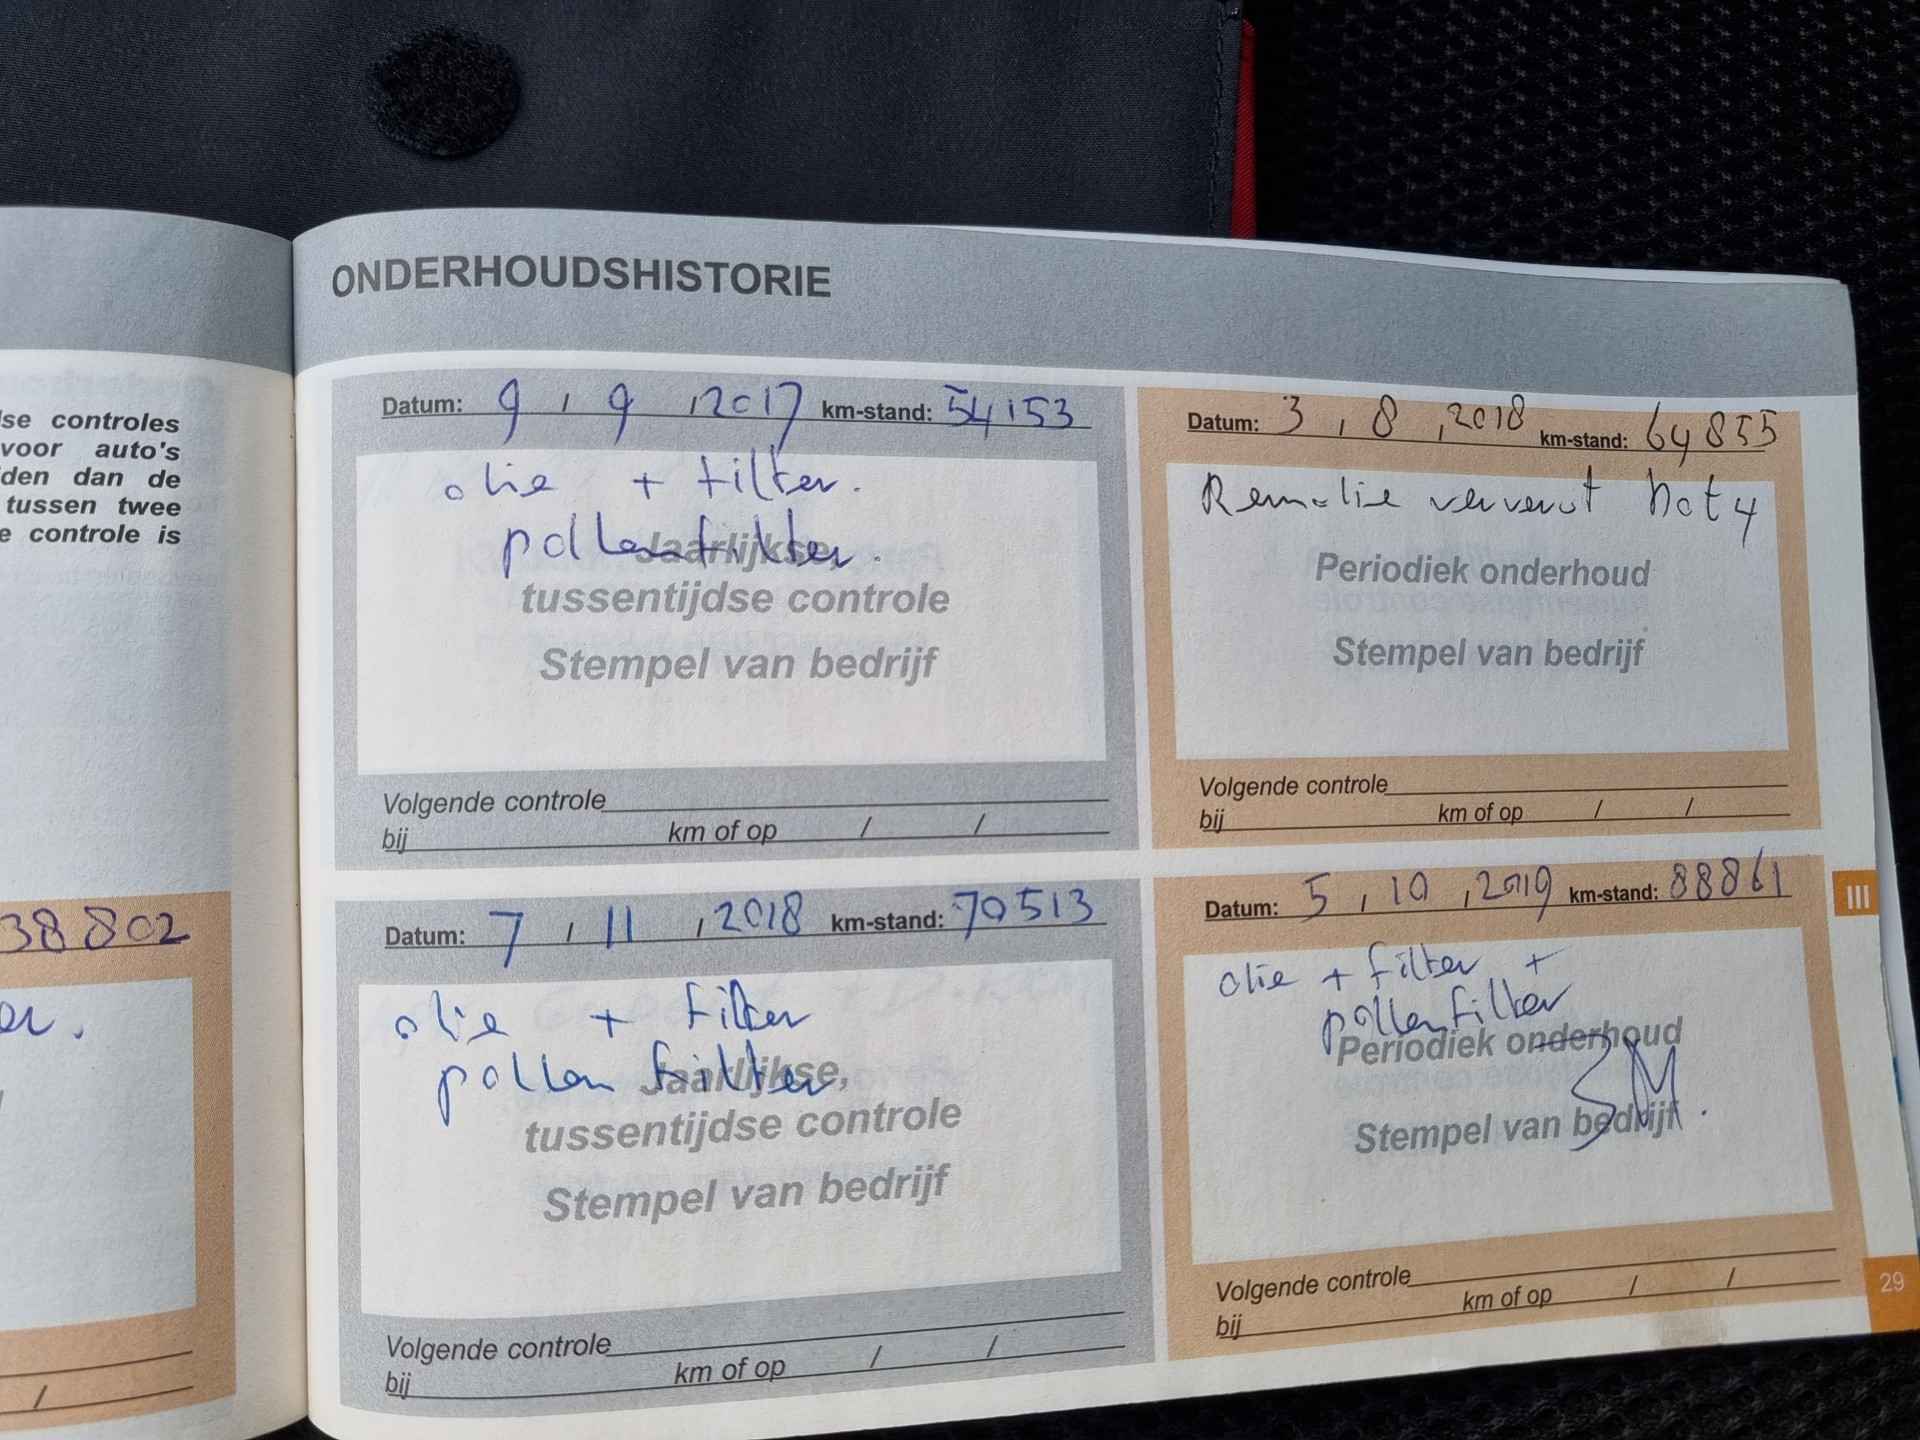 ONDERHOUDSHISTORIE
se controles
voor auto's
den dan de
tussen twee
e controle is
38802
er.
/
Datum: 9 / 9 / 2017 km-stand: 54153
olie + filter.
pollenfilter.
Jaarlijkse,
tussentijdse controle
Stempel van bedrijf
Volgende controle
bij km of op / /
Datum: 3 / 8 / 2018 km-stand: 64855
Remolie ververst Dot 4
Periodiek onderhoud
Stempel van bedrijf
Volgende controle
bij km of op / /
Datum: 7 / 11 / 2018 km-stand: 70513
olie + filter
pollen filter
Jaarlijkse,
tussentijdse controle
Stempel van bedrijf
Volgende controle
bij km of op / /
Datum: 5 / 10 / 2019 km-stand: 88861
olie + filter +
pollenfilter
Periodiek onderhoud
SM.
Stempel van bedrijf
Volgende controle
bij km of op / /
III
29